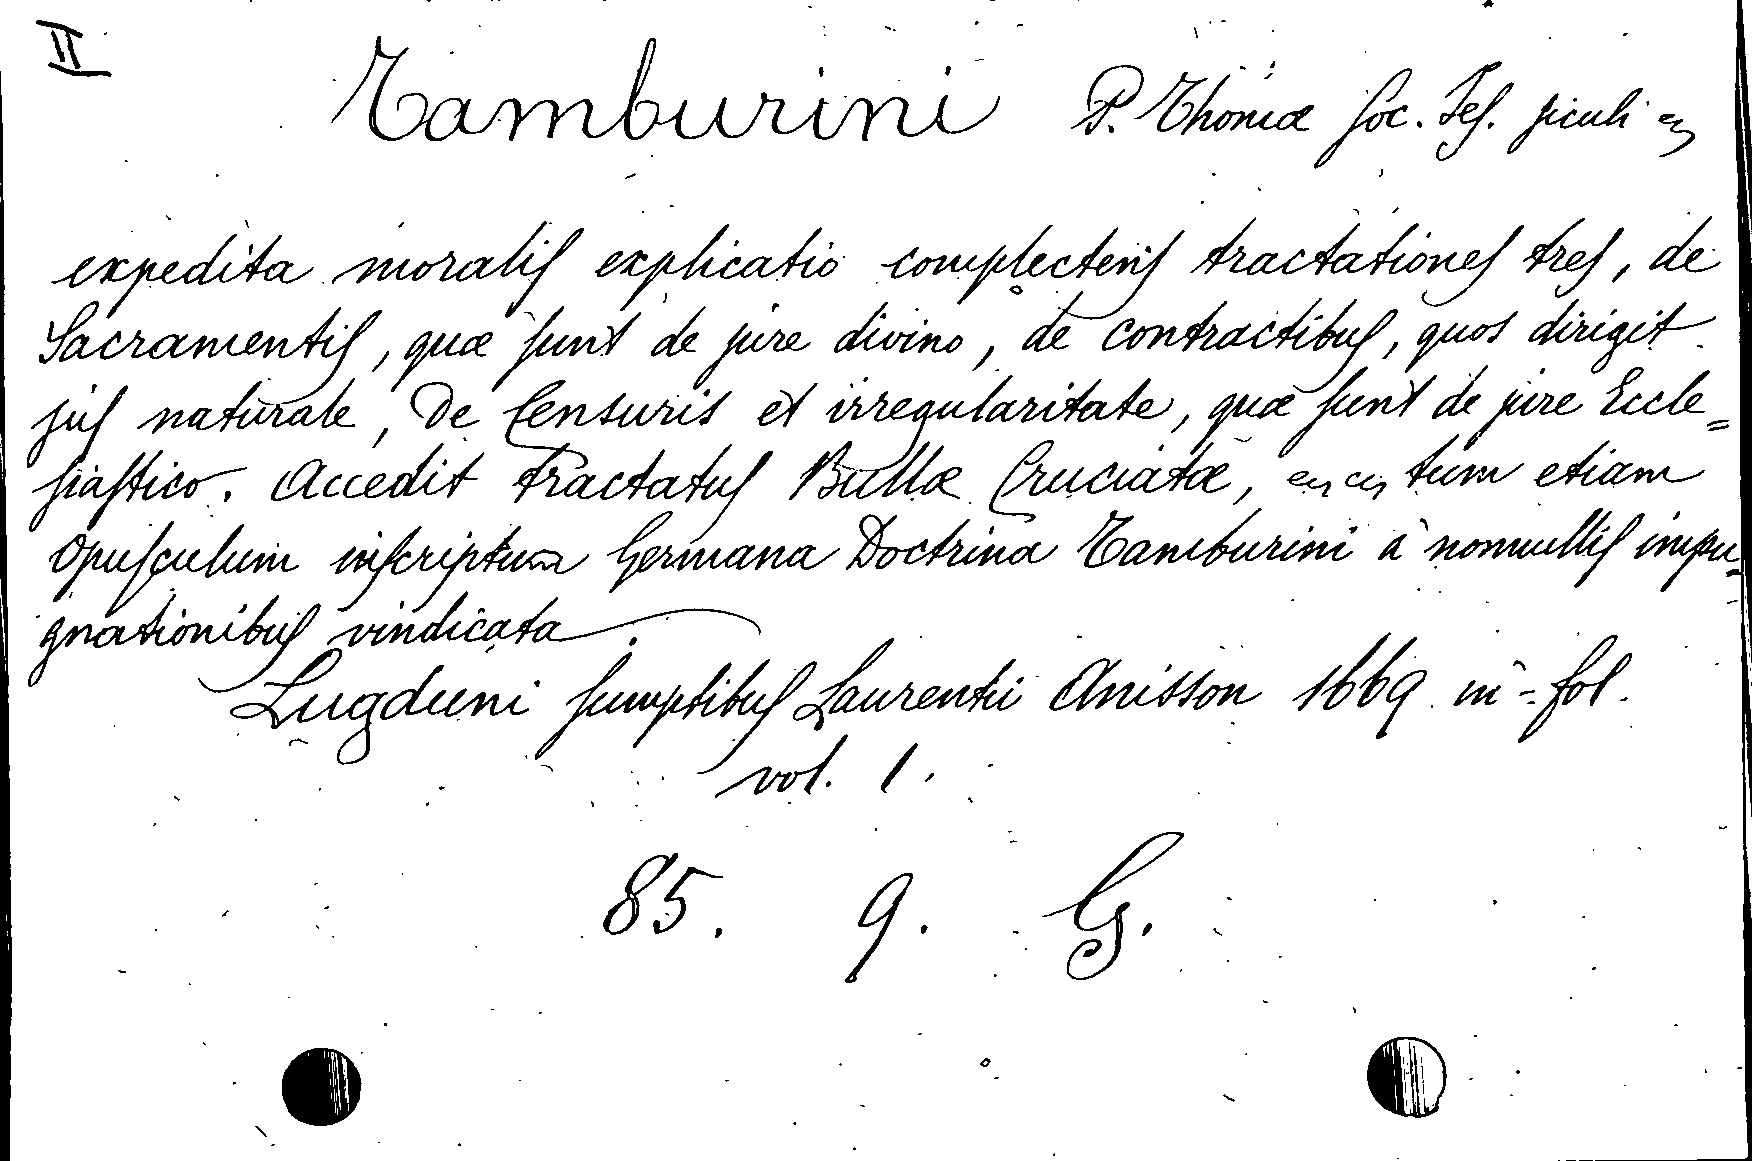 II
Tamburini P. Thomæ Soc. Jes. siculi
expedita moralis explicatio complectens tractationes tres, de
Sacramentis, quæ sunt de jure divino, de contractibus, quos dirigit
jus naturale, De Censuris et irregularitate, quæ sunt de jure Eccle=
siastico. Accedit tractatus Bullæ Cruciatæ, tum etiam
opusculum inscriptum Germana Doctrina Tamburini à nonnullis impu=
gnationibus vindicata.
Lugduni sumptibus Laurentii Anisson 1669 in-fol.
vol. 1.
85. 9. G.